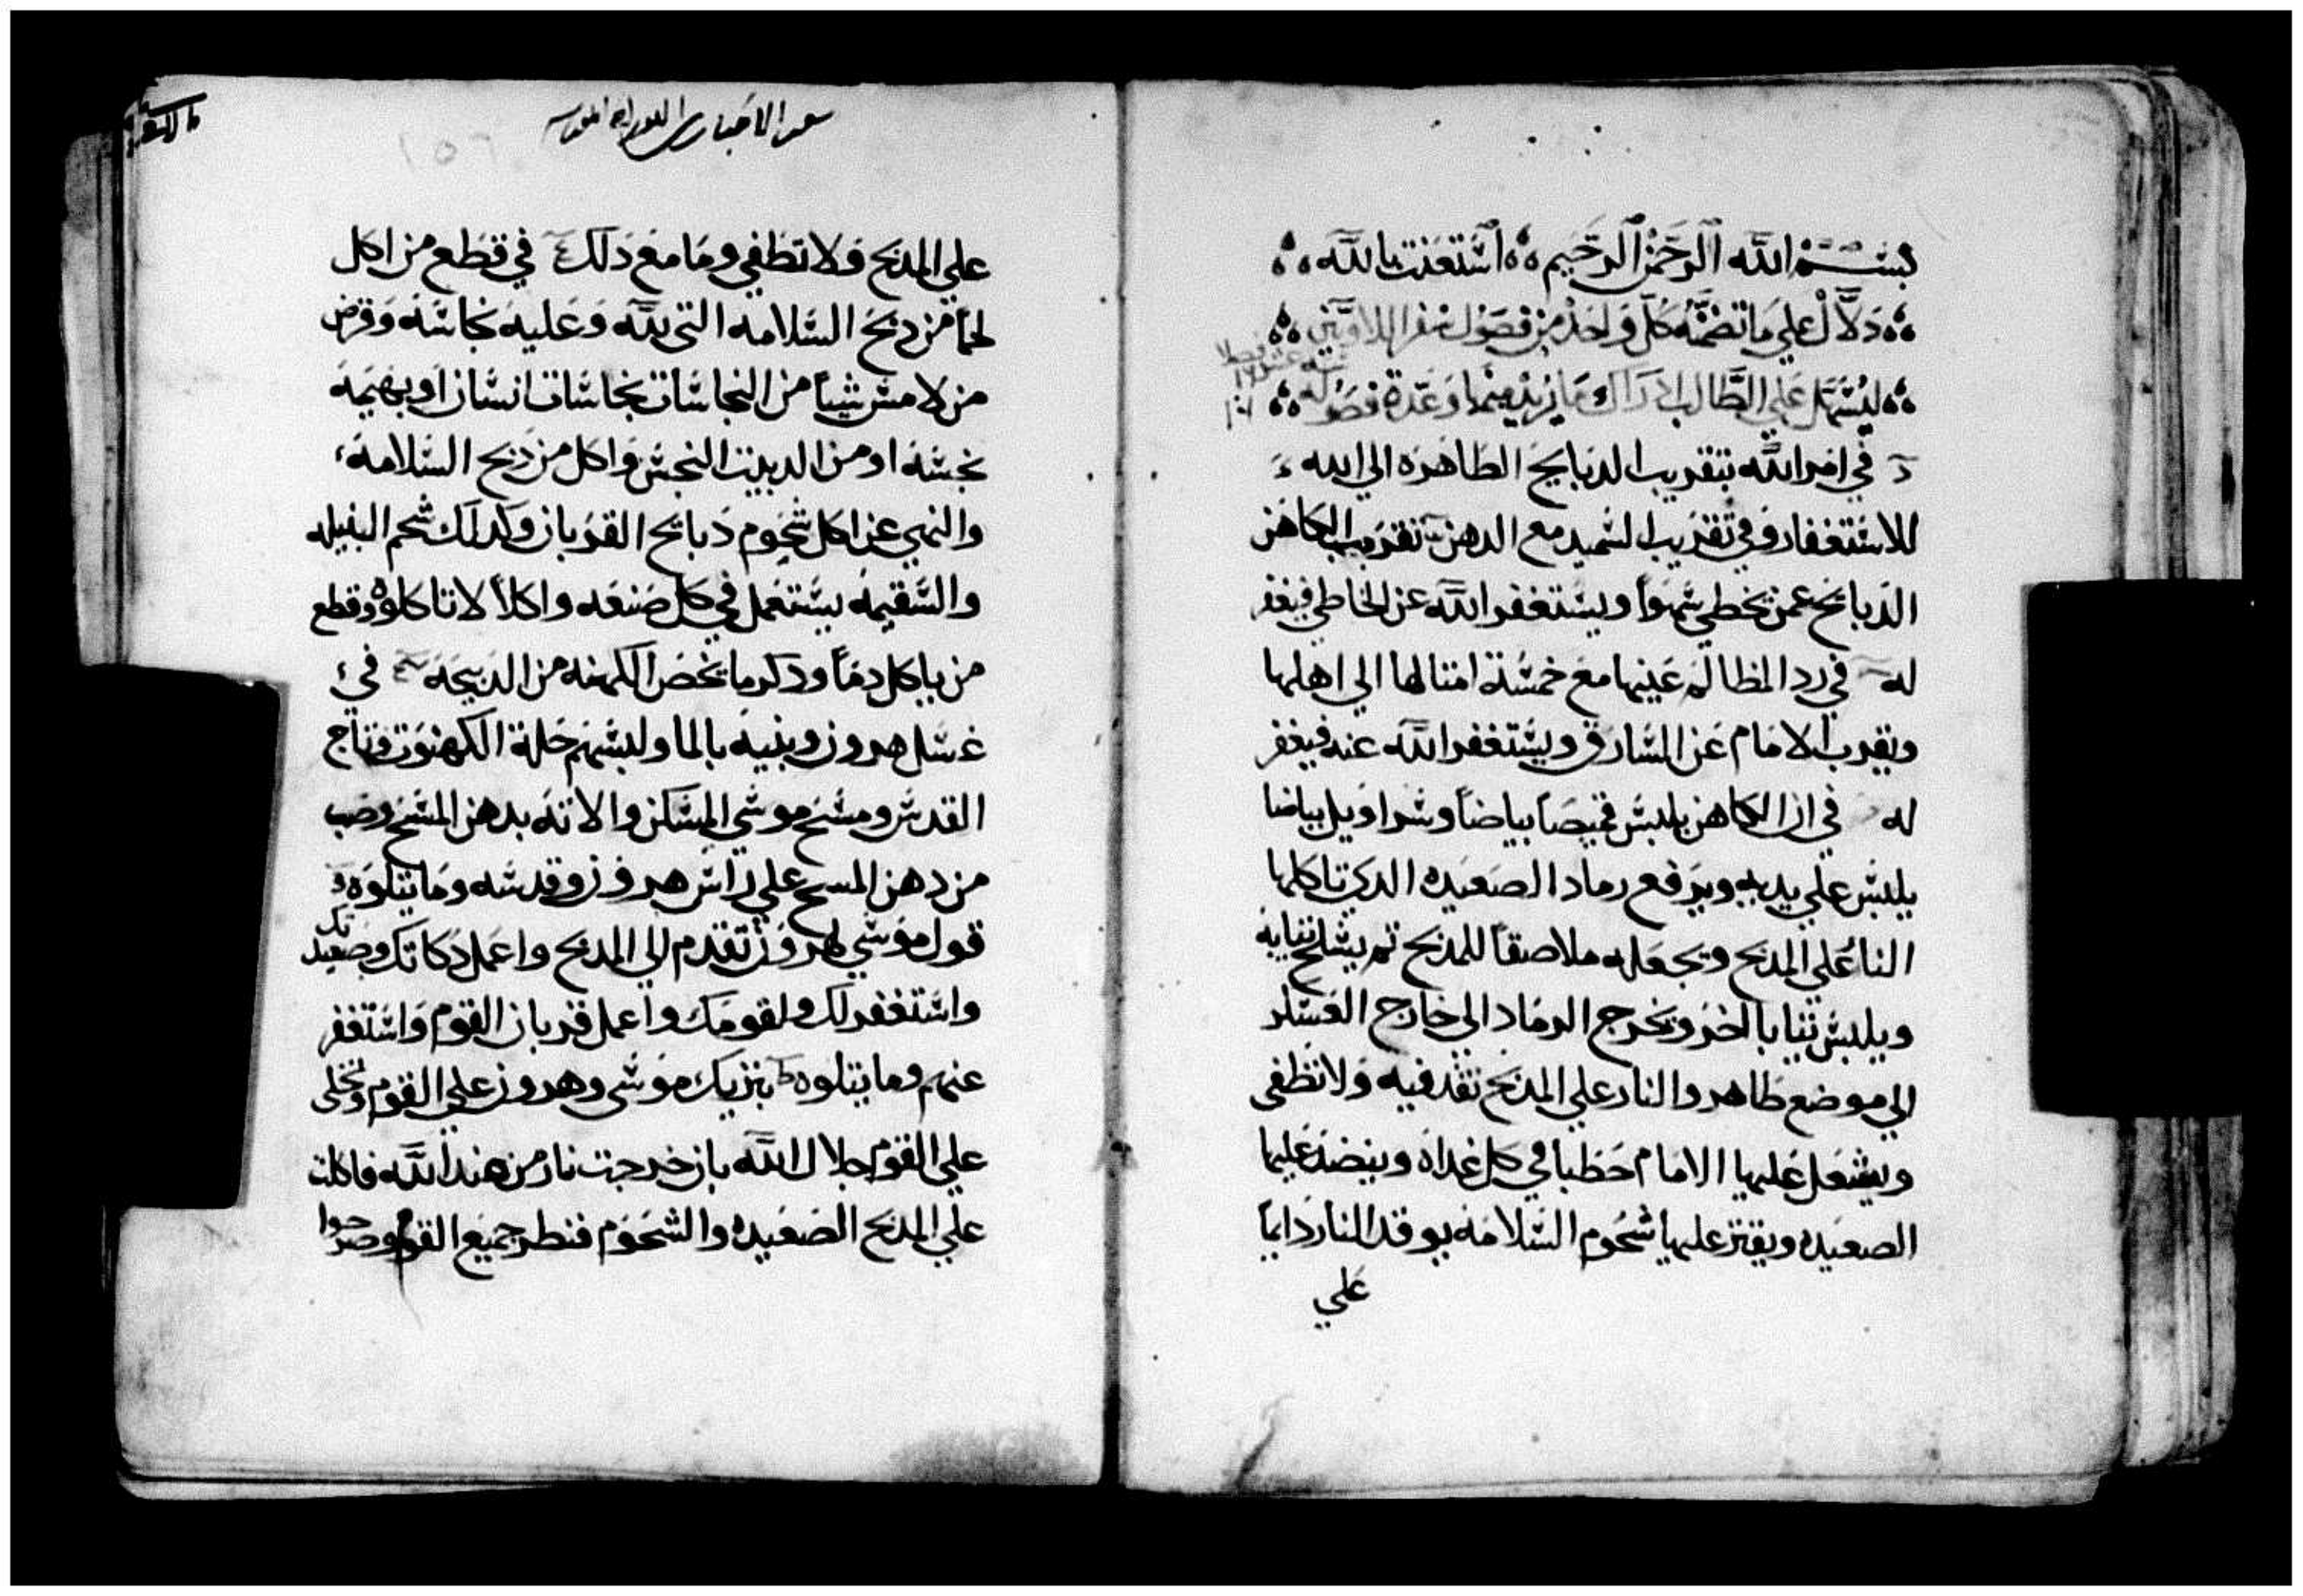 بسم الله الرحمن الرحيم استعنت بالله
دلال علي ما تضمنه كل واحد من فصول سفر اللاويين
ليسهل علي الطالب ادراك ما يريد منها وعدة فصوله
في امر الله بتقريب الدبايح الطاهره الي الله
للاستغفار وفي تقريب السميد مع الدهن تقريب الكاهن
الدبايح عمن يخطي سهواً ويستغفر الله عن الخاطي فيغفر
له في رد المظالم عينها مع خمسة امثالها الي اهلها
ويقرب الامام عن السارق ويستغفر الله عنه فيغفر
له في ان الكاهن يلبس قميصاً بياضاً وسراويل بياضا
يلبس علي يديه ويرفع رماد الصعيده الدي تاكلها
النار علي المدبح ويجعله ملاصقاً للمدبح تم يشلح تيابه
ويلبس تيابا اخر ويخرج الرماد الي خارج العسكر
الي موضع طاهر والنار علي المدبح تقد فيه ولا تطفي
ويشعل عليها الامام حطبا في كل غداه وينضد عليها
الصعيده ويقتر عليها شحوم السلامه يوقد النار دايماً
علي
سفر الاحبار
علي المدبح فلا تطفي وما مع دلك في قطع من اكل
لحماً من دبح السلامه التي لله وعليه نجاسه وقرض
من لامس شيياً من النجاسات نجاسات انسان او بهيمه
نجسه او من الدبيب النجس واكل من دبح السلامه
والنهي عن اكل شحوم دبائح القربان وكدلك شحم النبيله
والسقيمه يستعمل في كل صنعه واكلاً لا تاكلوه وقطع
من ياكل دماً ودكر ما يخص الكهنه من الدبيحه في
غسل هرون وبنيه بالما ولبسهم حلة الكهنوت وتاج
القدس ومسح موسي المسكن والانه بدهن المسح وصب
من دهن المسح علي راس هرون وقدسه وما يتلوه
قول موسي لهرون تقدم الي المدبح واعمل دكاتك وصعيدتك
واستغفر لك ولقومك واعمل قربان القوم واستغفر
عنهم وما يتلوه تبريك موسي وهرون علي القوم وتجلي
علي القوم جلال الله بان خرجت نار من عند الله فاكلت
علي المدبح الصعيده والشحوم فنظر جميع القوم